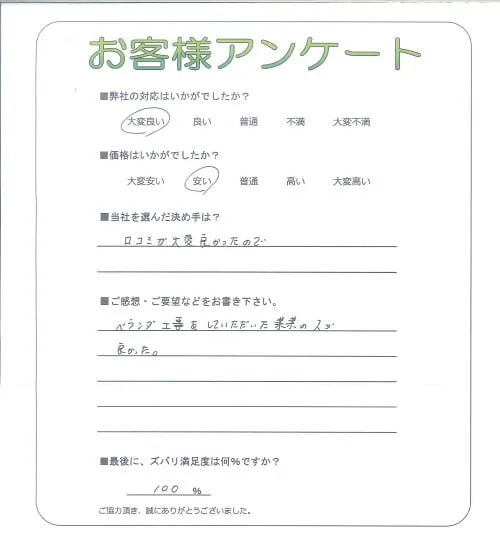 お客様アンケート
■弊社の対応はいかがでしたか？
大変良い 良い 普通 不満 大変不満
■価格はいかがでしたか？
大変安い 安い 普通 高い 大変高い
■当社を選んだ決め手は？
口コミが大変良かったので
■ご感想・ご要望などをお書き下さい。
ベランダ工事をしていただいた業業の人が
良かった。
■最後に、ズバリ満足度は何％ですか？
100 ％
ご協力頂き、誠にありがとうございました。